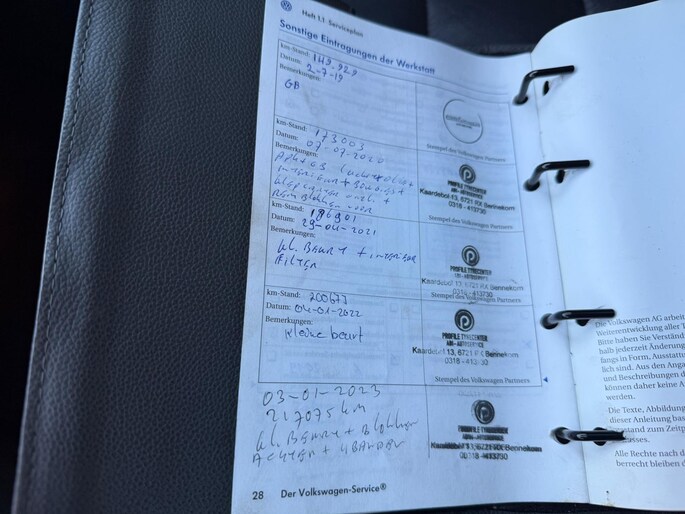 Heft 1.1 Serviceplan
Sonstige Eintragungen der Werkstatt
km-Stand: 149.929
Datum: 2-7-19
Bemerkungen:
GB
Stempel des Volkswagen Partners
km-Stand: 173003
Datum: 07-07-2020
Bemerkungen:
PROFILE TYRECENTER
ABH-AUTOSERVICE
Kaardebol 13, 6721 RX Bennekom
0318 - 413730
Stempel des Volkswagen Partners
km-Stand: 186901
Datum: 29-04-2021
Bemerkungen:
kl. BEURT + INTERIEUR
FILTER
PROFILE TYRECENTER
Kaardebol 13, 6721 RX Bennekom
0318 - 413730
Stempel des Volkswagen Partners
km-Stand: 200677
Datum: 04-01-2022
Bemerkungen:
kleine beurt
PROFILE TYRECENTER
Kaardebol 13, 6721 RX Bennekom
Stempel des Volkswagen Partners
03-01-2023
217075 km
kl. BEURT + Blokken
ACHTER + 4BANDEN
PROFILE TYRECENTER
Kaardebol 13, 6721 RX Bennekom
0318 - 413730
28 Der Volkswagen-Service®
Die Volkswagen AG arbeit
Weiterentwicklung aller T
Bitte haben Sie Verständ
halb jederzeit Änderung
fangs in Form, Ausstattu
lich sind. Aus den Anga
und Beschreibungen d
können daher keine A
werden.
Die Texte, Abbildung
dieser Anleitung basi
stand zum Zeitp
Alle Rechte nach d
berrecht bleiben d